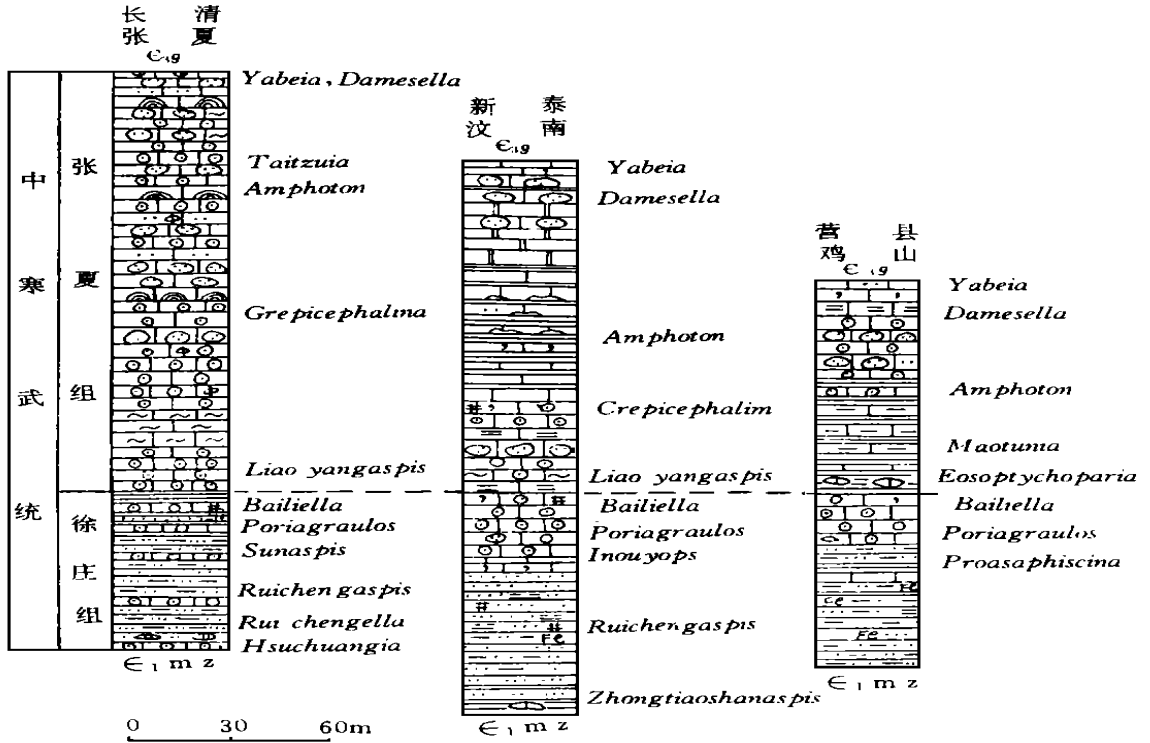 长 清
张 夏
∈₃g
Yabeia, Damesella
Taitzuia
Amphoton
Grepicephalina
Liao yangaspis
Bailiella
Poriagraulos
Sunaspis
Ruichengaspis
Rui chengella
Hsuchuangia
∈₁mz
中寒武统
张夏组
徐庄组
新 泰
汶 南
∈₃g
Yabeia
Damesella
Amphoton
Crepicephalim
Liao yangaspis
Bailiella
Poriagraulos
Inouyops
Ruichengaspis
Zhongtiaoshanaspis
Fe
∈₁mz
营 县
鸡 山
Yabeia
Damesella
Amphoton
Maotunia
Eosoptychoparia
Bailiella
Poriagraulos
Proasaphiscina
Fe
Fe
∈₁mz
0 30 60m